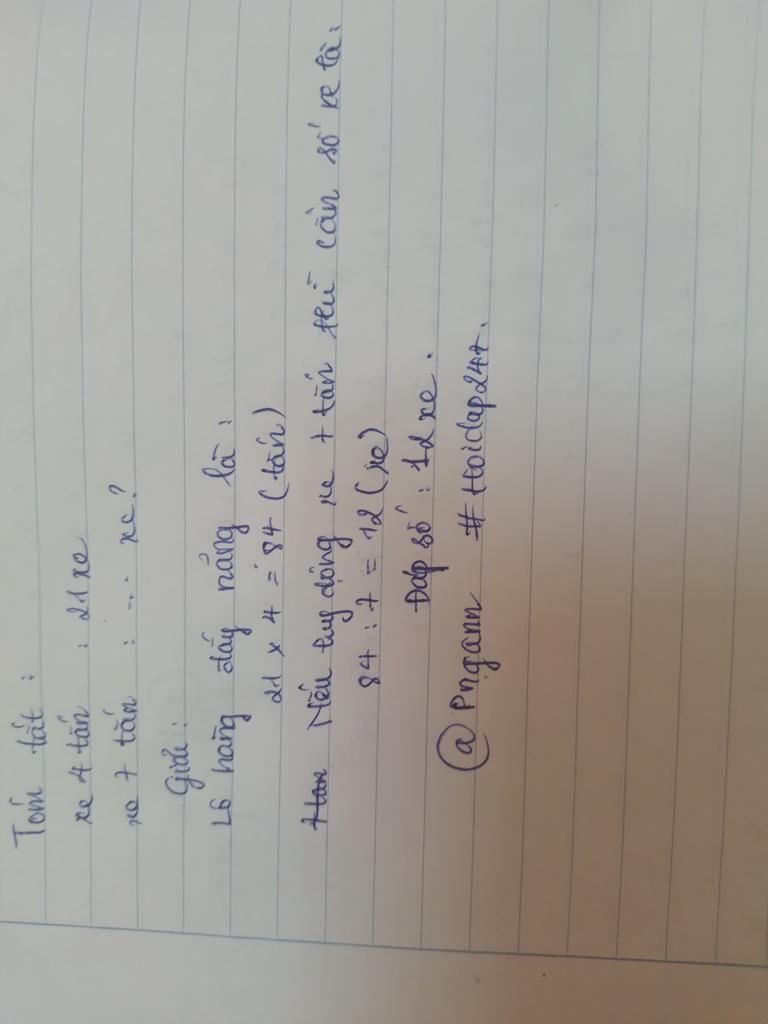 Tóm tắt :
xe 4 tấn : 21 xe
xe 7 tấn : ... xe?
Giải :
Lô hàng đấy nặng là :
21 x 4 = 84 (tấn)
Nếu huy động xe 7 tấn thì cần số xe là :
84 : 7 = 12 (xe)
Đáp số : 12 xe .
@Pngann #Hoidap247.